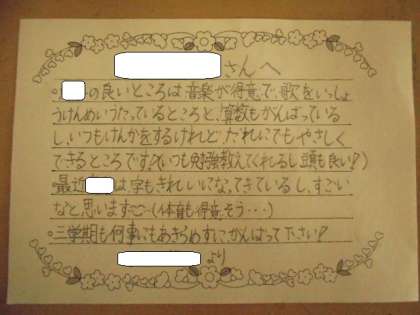 さんへ
・の良いところは音楽が得意で、歌をいっしょ
うけんめいうたっているところと、算数もがんばっている
し、いつもけんかをするけれどだれにでもやさしく
できるところです!(いつも勉強教えてくれるし頭も良い!)
・最近は、字もきれいになってきているし、すごい
なと思います(体育も得意そう・・・)
・三学期も何事にもあきらめずにがんばって下さい!
より